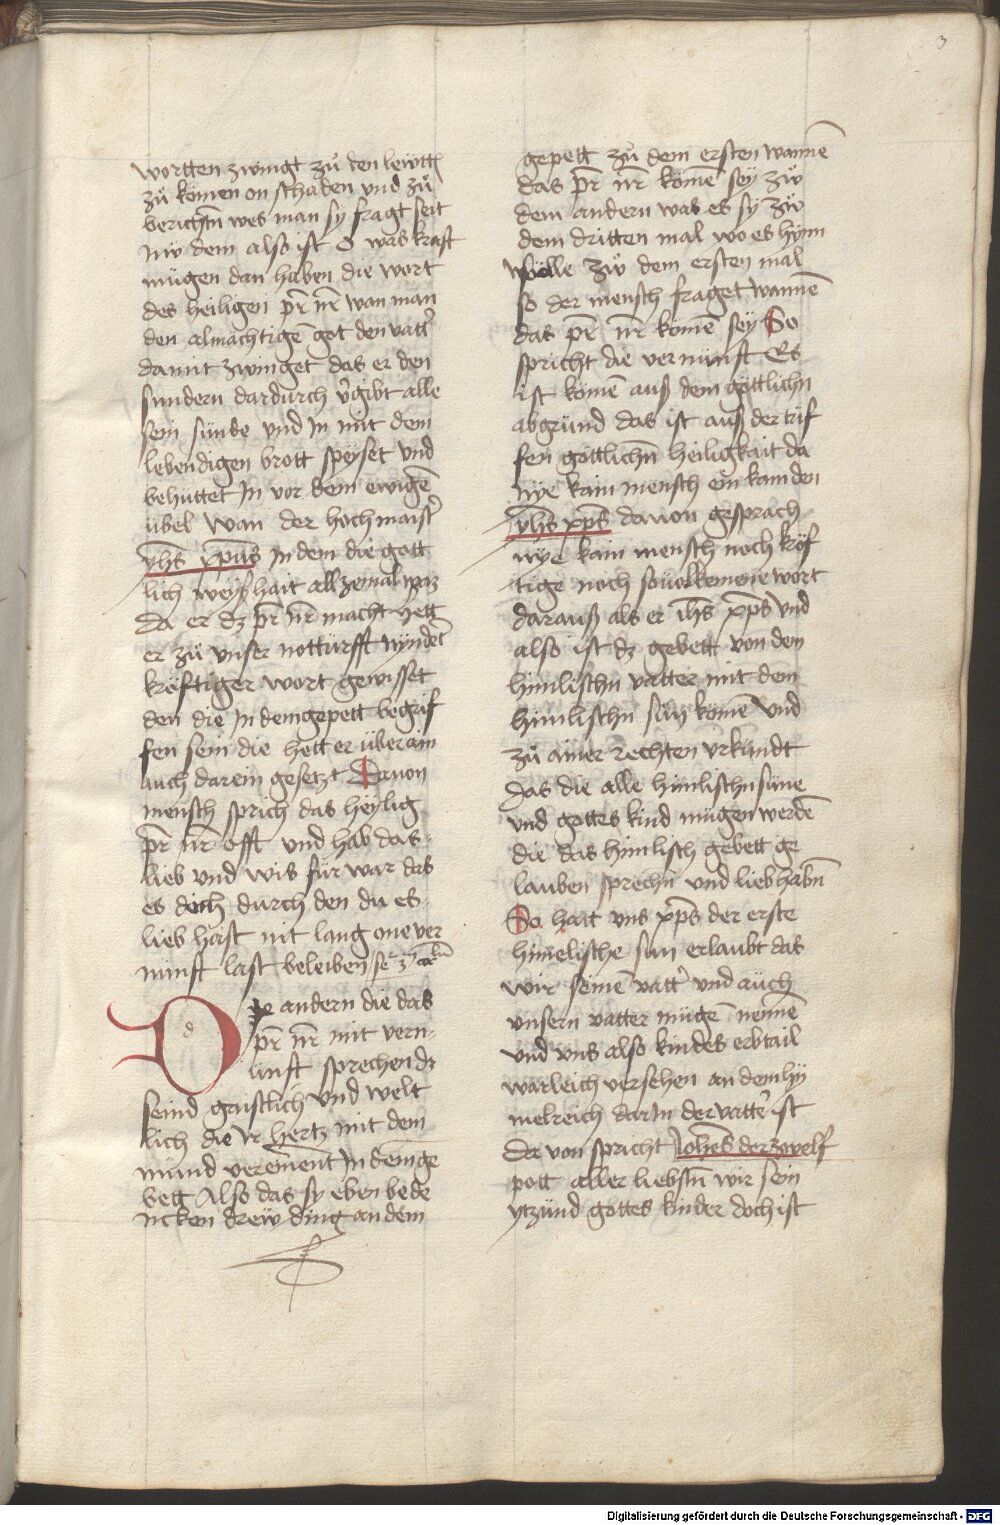 3
wortten zwingt zů den lewttn̄
zů komen on schaden vnd zů
berichtn̄ wes man sy fragt seit
nw dem also ist O was kraft
mügen dan haben die wort
des heiligen pr̄ nr̄ wan man
den almächtigē got den vatt̓
damit zwinget das er den
sundern dardurch v̓gibt alle
sein sünde vnd In mit dem
lebendigen brott speyset vnd
behüttet In vor dem ewigē
übel wan der hoch maist̓
yhs xpūs In dem die gott
lich weyßhait all zemal waz
da er dz pr̄ nr̄ macht hett
er zü vnser notturfft nyndet̓
kröftiger wort gewisset
den die In dem gepett begrif
fen sein die hett er über ain
auch darein gesetzt Dauon
mensch sprich das heylig
pr̄ nr̄ offt vnd hab das
lieb vnd wis für war das
es dich durch den du es
lieb hast nit lang one ver
nunft last beleiben
Die andern die das
pr̄ nr̄ mit vern
unft sprechen dz
seind gaistlich vnd welt
lich die Ir hertz mit dem
mund verement In dem ge
bett Also das sy eben bede
ncken drew ding an dem
gepett zů dem ersten wannē
das pr̄ nr̄ komē sey zw̓
dem andern was es sy zw̓
dem dritten mal wo es hynn
wölle zw̓ dem ersten mal
so der mensch fraget wannē
das pr̄ nr̄ komē sey So
spricht die vernunft Es
ist komē auß dem göttlichn
abgrund das ist auß der tüf
fen göttlichn̄ heiligkait da
nye kain mensch ein kam den
yhs xps dauon gesprach
nye kain mensch noch kröf
tige noch so volkemene wort
darauß als er ihs xps vnd
also ist dz gebett von dem
himlischn vatter mit dem
himlischn sun komē vnd
zů ainer rechten vrkundt
das die alle himlischn süne
vnd gottes kind mügen werdē
die das himlisch gebett ge
lauben sprechn vnd lieb habn̄
So hatt vns xps der erste
himelische sun erlaubt das
wir seinē vatt̓ vnd auch
vnsern vatter mügē nennē
vnd vns also kindes erbtail
warleich versehen an dem hy
melreich darIn der vatte̓ ist
da von spricht Johēs der zwelf
pott aller liebstn̄ wir sein
ytzund gottes kinder doch ist
Digitalisierung gefördert durch die Deutsche Forschungsgemeinschaft - DFG